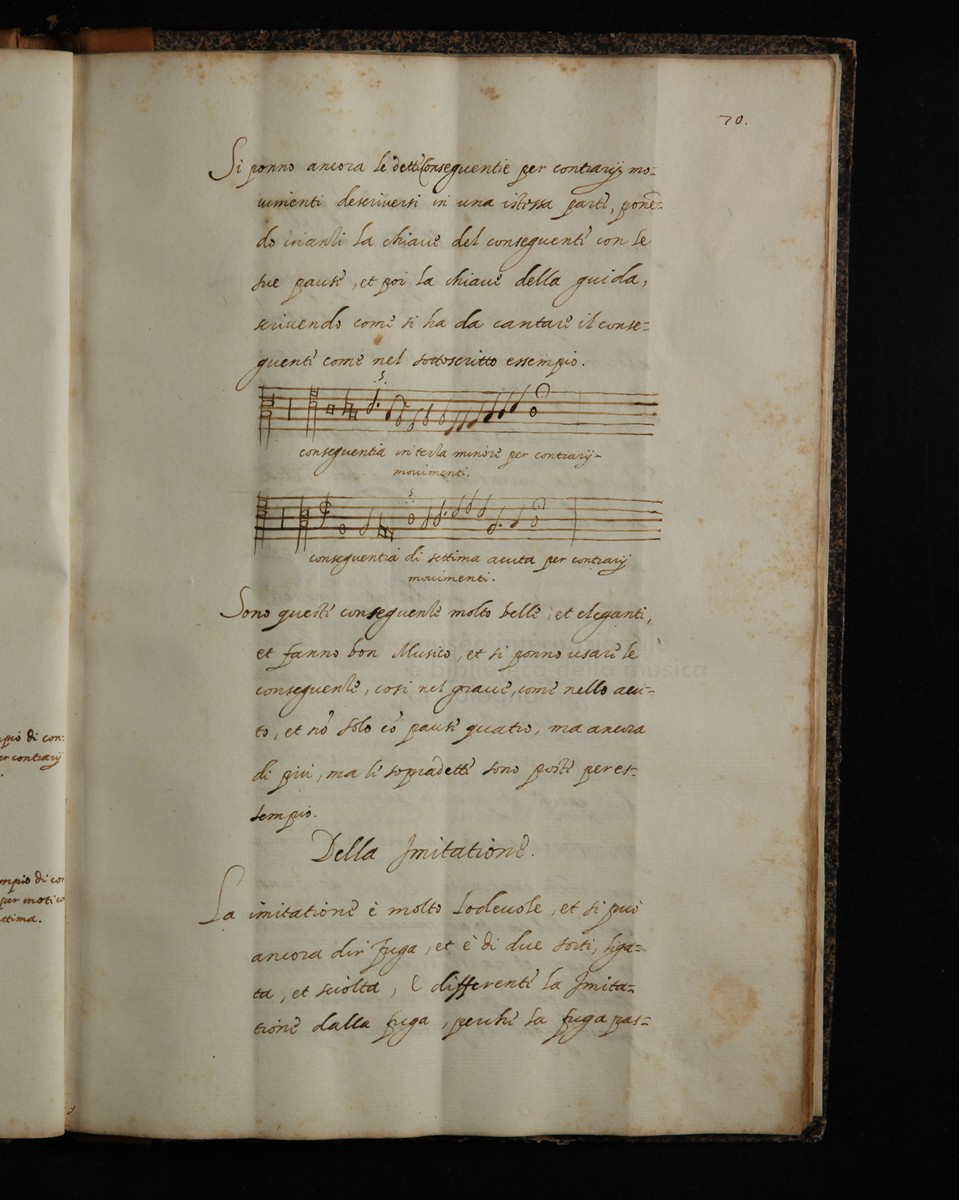 70.
Si ponno ancora le dette Conseguentie per contrarij mo-
uimenti descriuersi in una istessa parte, ponē-
do inanti la chiaue del conseguente con le
sue pause, et poi la chiaue della guida,
scriuendo come si ha da cantare il conse-
guente come nel sottoscritto essempio.
conseguentia in terza minore per contrarij
mouimenti.
conseguentia di settima acuta per contrarij
mouimenti.
Sono queste conseguente molto belle, et eleganti,
et fanno bon Musico, et si ponno usare le
conseguente, cosi nel graue, come nello acu-
to, et nō solo cō pause quatro, ma ancora
di piu, ma li sopradetti sono posti per es-
sempio.
Della Imitatione.
La imitatione è molto lodeuole, et si può
ancora dir fuga, et è di due sorti, liga-
ta, et sciolta, è differente la Imita-
tione dalla fuga, perche la fuga pas-
mpio di con:
er contrarij
mpio di con
per moti co
ettima.